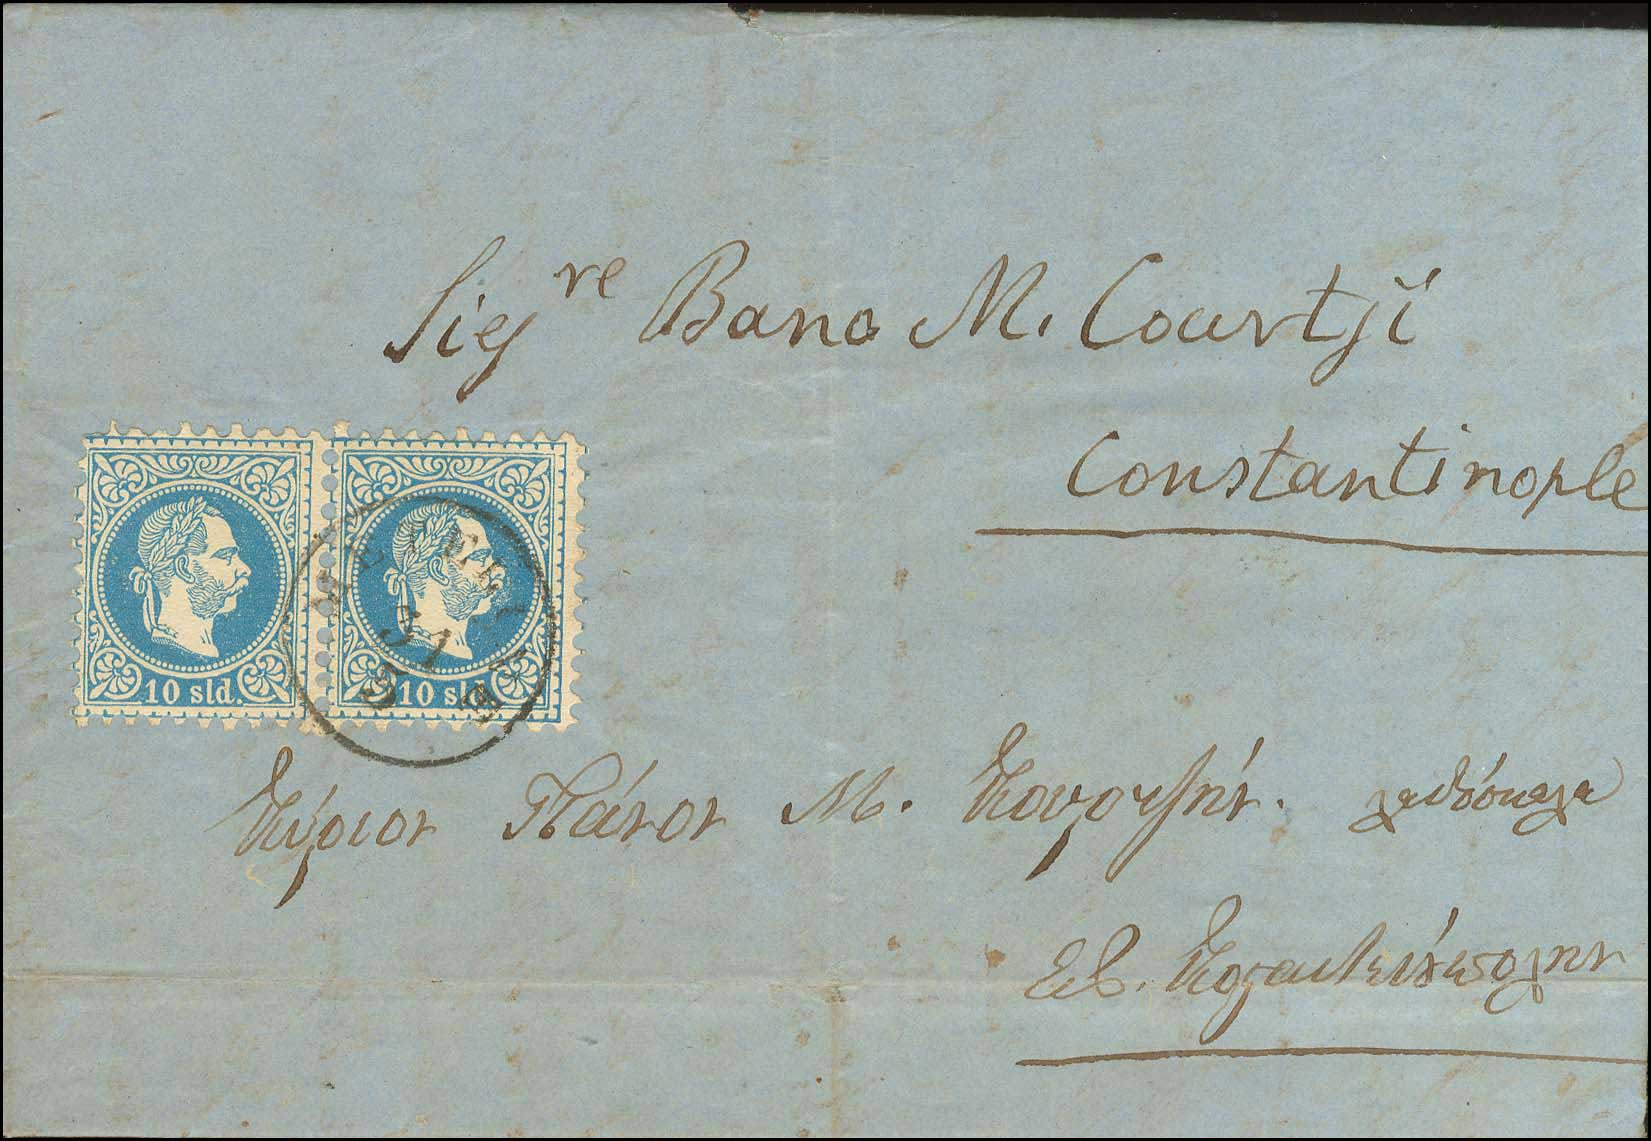 Sigre Bano M. Courtji
Constantinople
10 sld. 10 sld.
METELI
31
5
Κύριον Πάνον Μ. Κουρτζήν.
Εἰς Κωσταντινόπολην